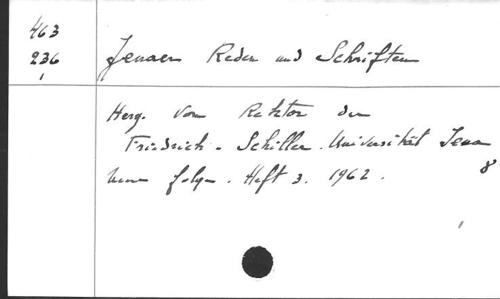 463
236
Jenaer Reden und Schriften
Herg. vom Rektor der
Friedrich-Schiller-Universität Jena
Neue Folge. Heft 3. 1962.
8